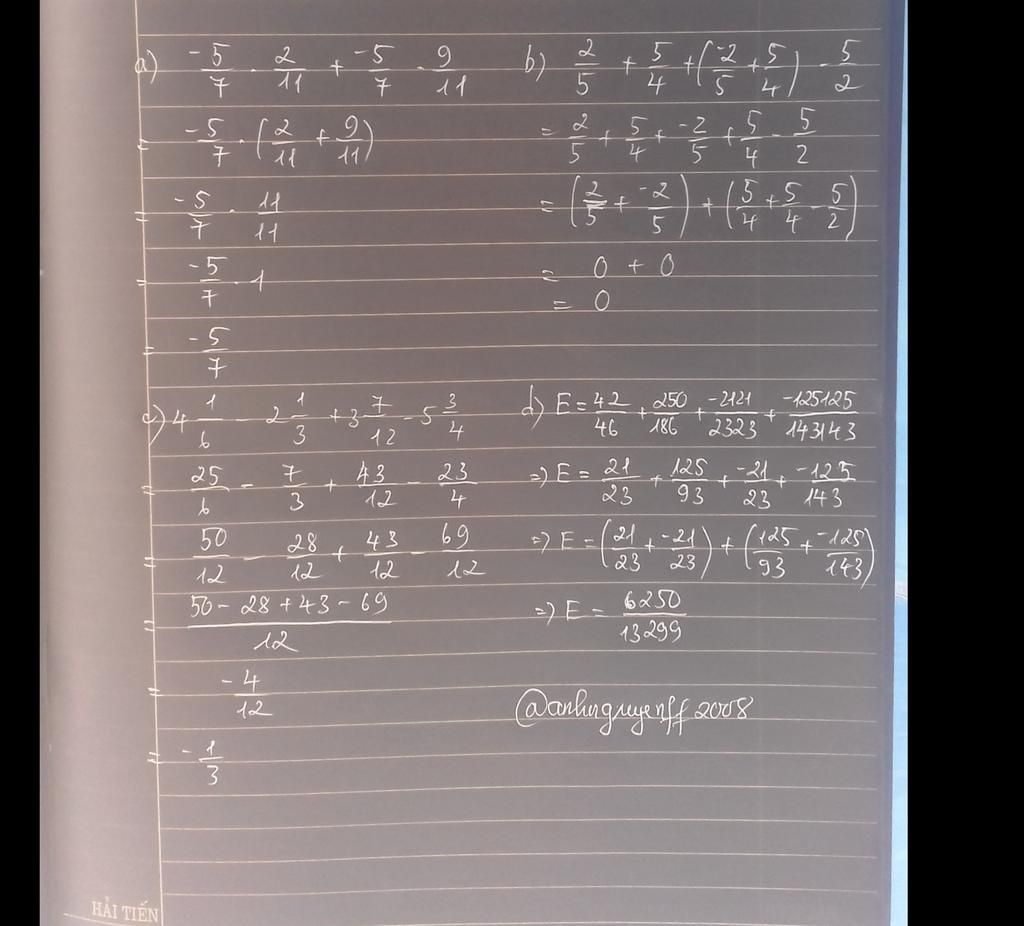 a) -5/7 . 2/11 + -5/7 . 9/11
= -5/7 . (2/11 + 9/11)
= -5/7 . 11/11
= -5/7 . 1
= -5/7
b) 2/5 + 5/4 + (-2/5 + 5/4) - 5/2
= 2/5 + 5/4 + -2/5 + 5/4 - 5/2
= (2/5 + -2/5) + (5/4 + 5/4 - 5/2)
= 0 + 0
= 0
c) 4 1/6 - 2 1/3 + 3 7/12 - 5 3/4
= 25/6 - 7/3 + 43/12 - 23/4
= 50/12 - 28/12 + 43/12 - 69/12
= 50 - 28 + 43 - 69/12
= -4/12
= -1/3
d) E = 42/46 + 250/186 + -2121/2323 + -125125/143143
=> E = 21/23 + 125/93 + -21/23 + -125/143
=> E = (21/23 + -21/23) + (125/93 + -125/143)
=> E = 6250/13299
@anhnguyenff2008
HẢI TIẾN